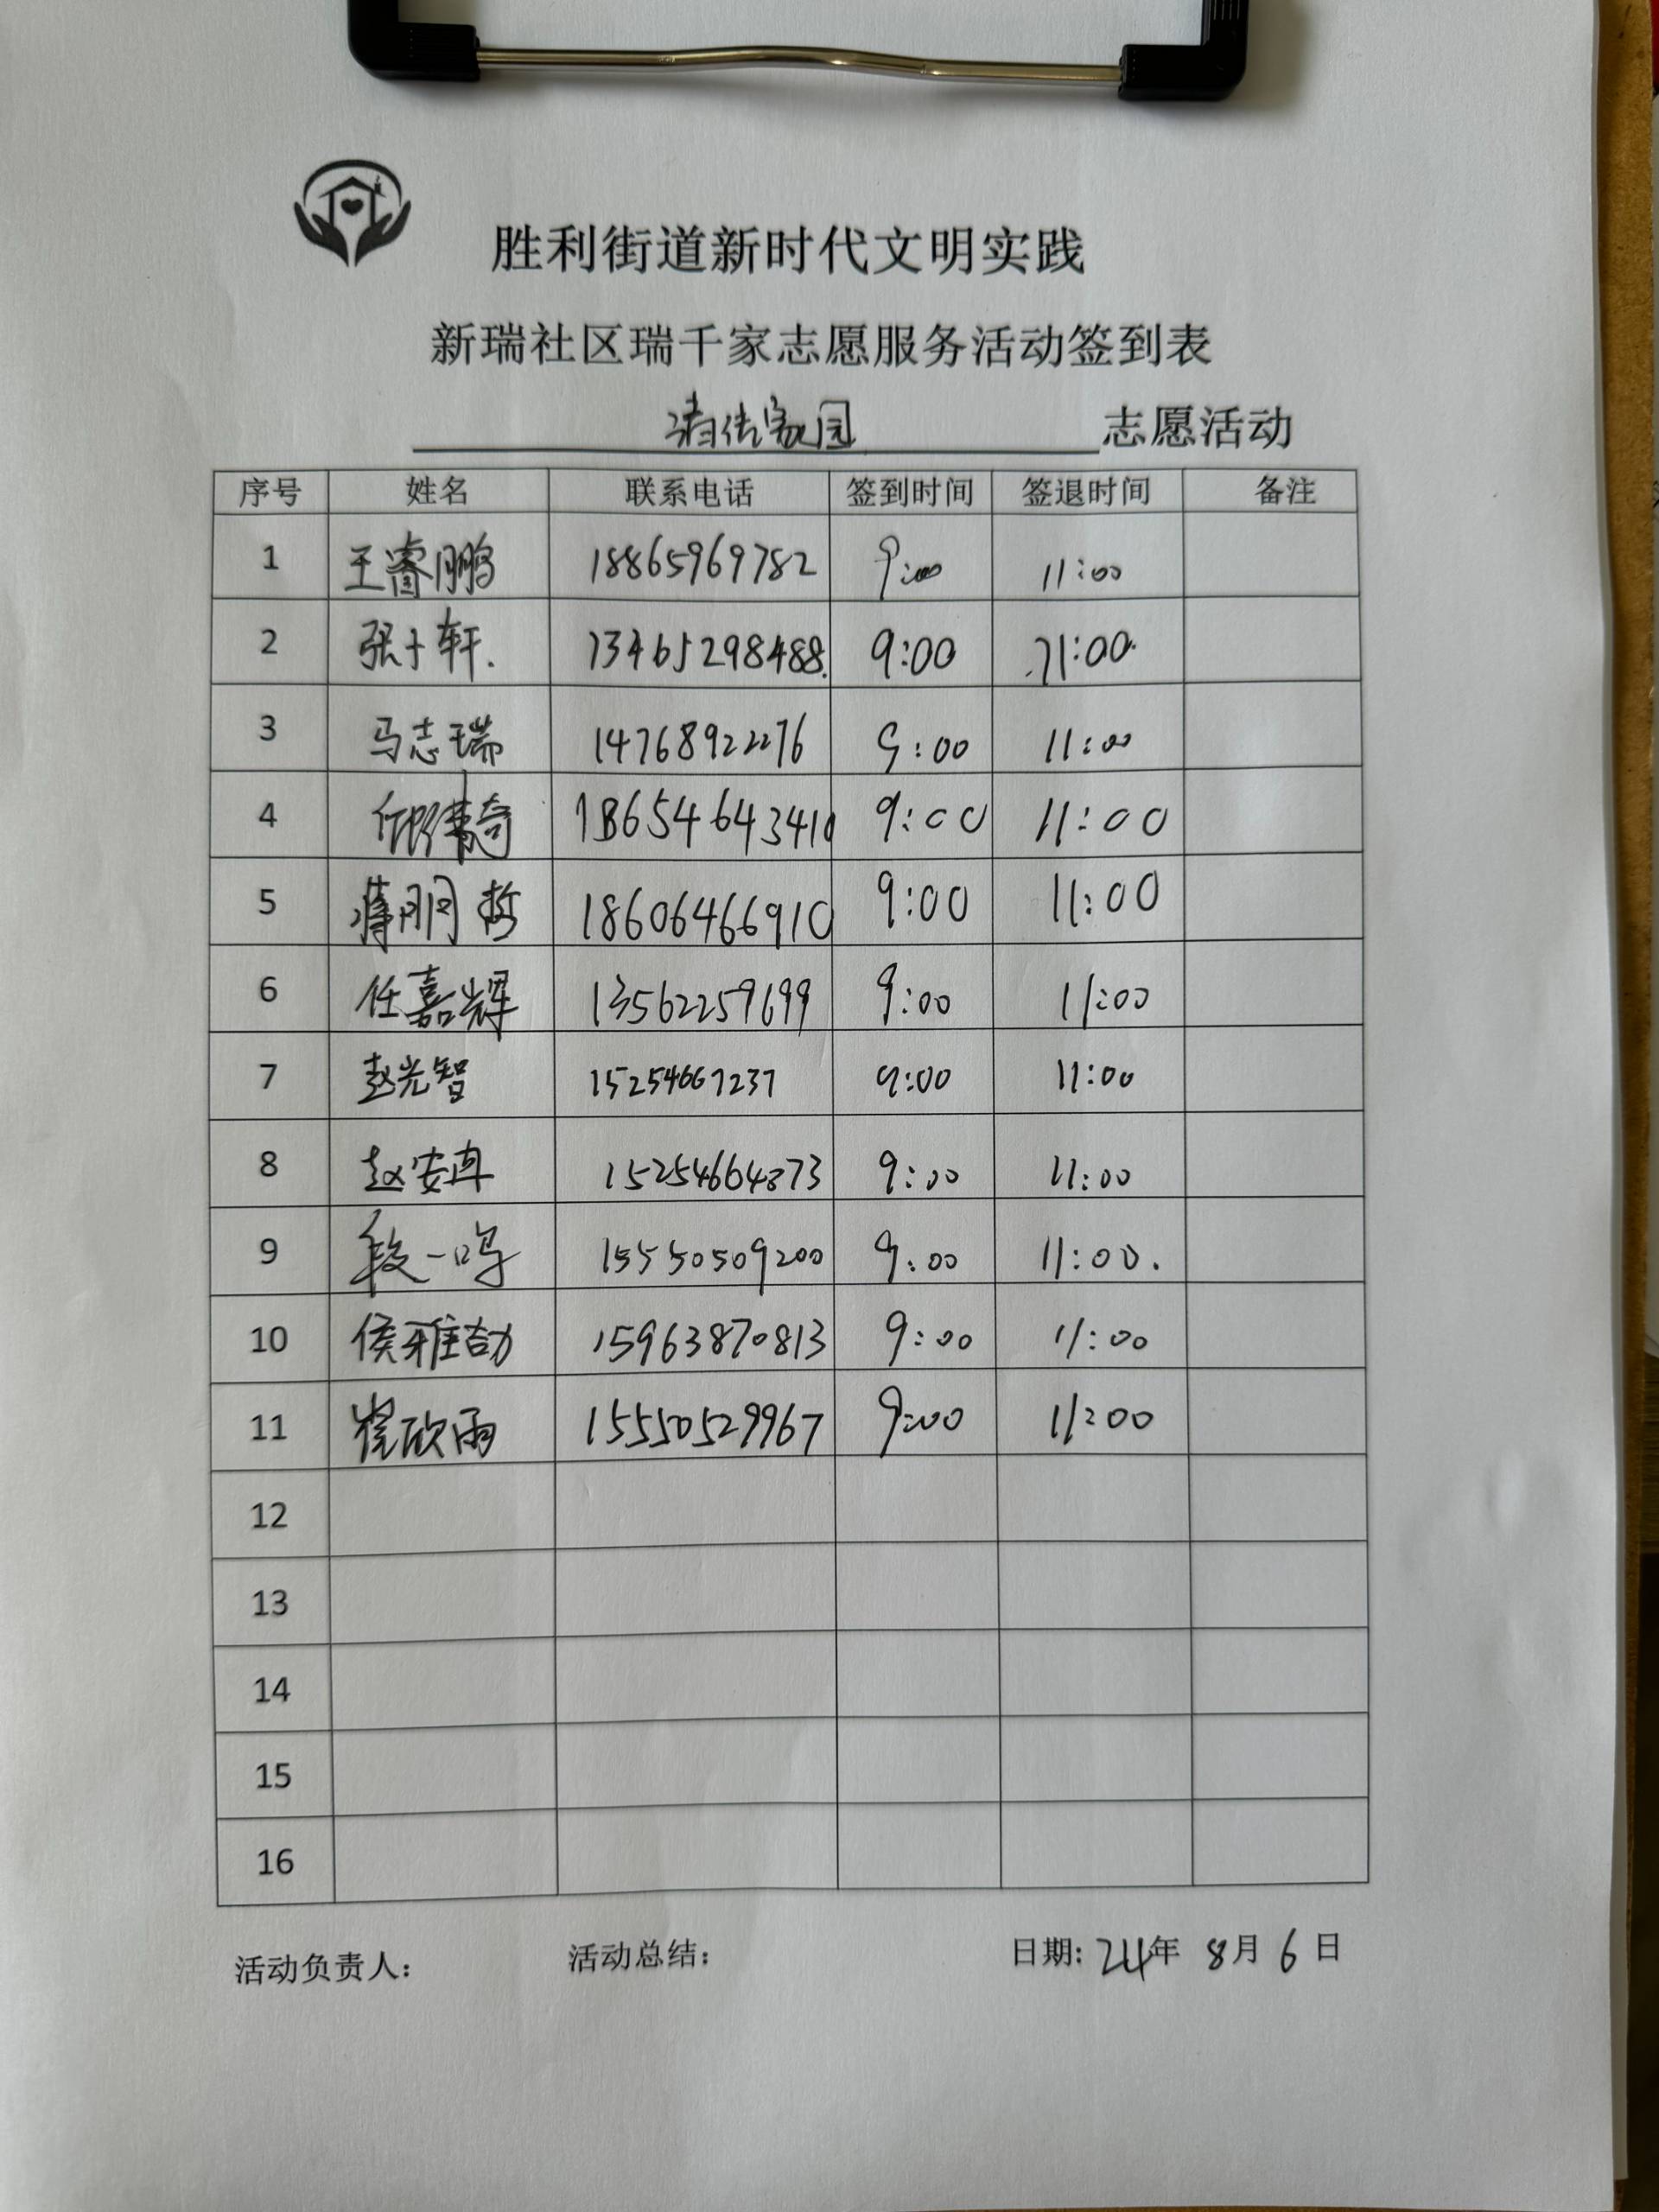 胜利街道新时代文明实践
新瑞社区瑞千家志愿服务活动签到表
清洁家园 志愿活动
序号 姓名 联系电话 签到时间 签退时间 备注
1 王睿鹏 18865969782 9:00 11:00
2 张十轩. 13465298488. 9:00 11:00
3 马志瑞 14768922276 9:00 11:00
4 18654643410 9:00 11:00
5 蒋朋哲 18606466910 9:00 11:00
6 任嘉辉 13562259699 9:00 11:00
7 赵光智 15254667237 9:00 11:00
8 赵安冉 15254664373 9:00 11:00
9 段一鸣 15550509200 9:00 11:00.
10 侯雅喆 15963870813 9:00 11:00
11 崔欣雨 15550529967 9:00 11:00
12
13
14
15
16
活动负责人: 活动总结: 日期: 24年 8月 6日